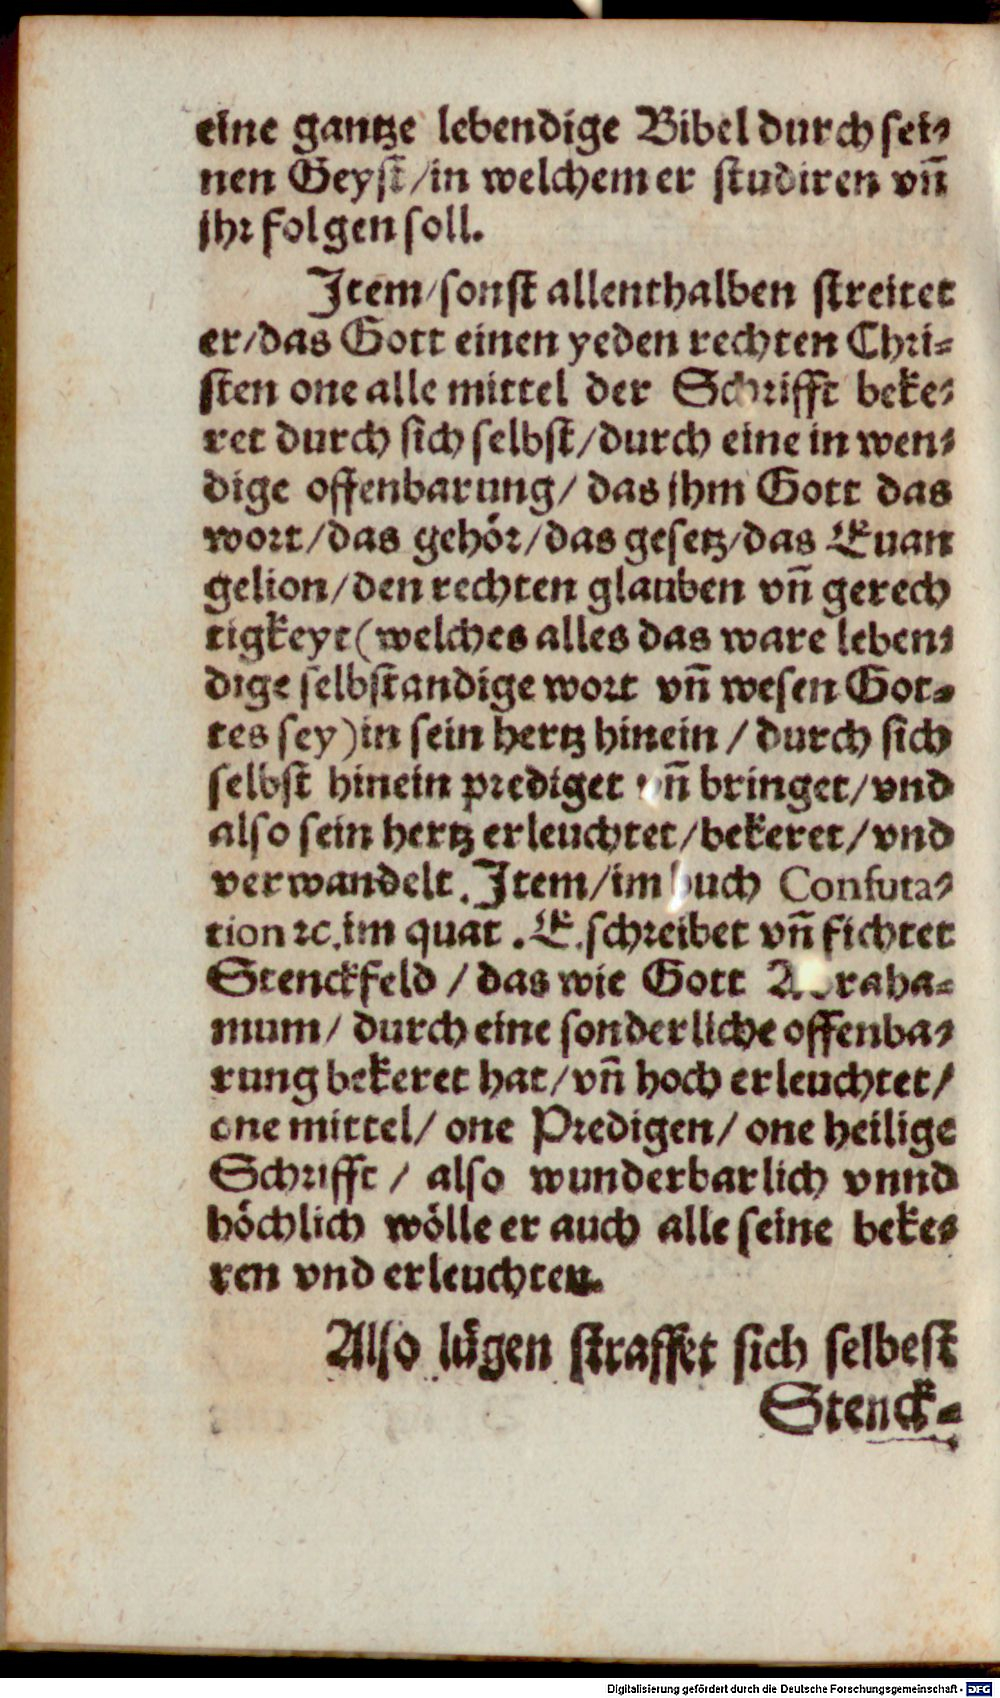 eine gantze lebendige Bibel durch sei⸗
nen Geyst/in welchem er studiren vn̄
jhr folgen soll.
Item/sonst allenthalben streitet
er/das Gott einen yeden rechten Chri⸗
sten one alle mittel der Schrifft beke⸗
ret durch sich selbst/durch eine in wen⸗
dige offenbarung/ das jhm Gott das
wort/das gehör/das gesetz/das Euan
gelion/den rechten glauben vn̄ gerech
tigkeyt(welches alles das ware leben⸗
dige selbstandige wort vn̄ wesen Got⸗
tes sey)in sein hertz hinein / durch sich
selbst hinein prediget vn̄ bringet/vnd
also sein hertz erleuchtet/bekeret/vnd
verwandelt. Item/im buch Confuta⸗
tion ꝛc.im quat . E.schreibet vn̄ fichtet
Stenckfeld / das wie Gott Abraha⸗
mum/ durch eine sonderliche offenba⸗
rung bekeret hat/vn̄ hoch erleuchtet/
one mittel/ one Predigen/ one heilige
Schrifft / also wunderbarlich vnnd
höchlich wölle er auch alle seine beke⸗
ren vnd erleuchten.
Also lügen straffet sich selbest
Stenck⸗
Digitalisierung gefördert durch die Deutsche Forschungsgemeinschaft - DFG